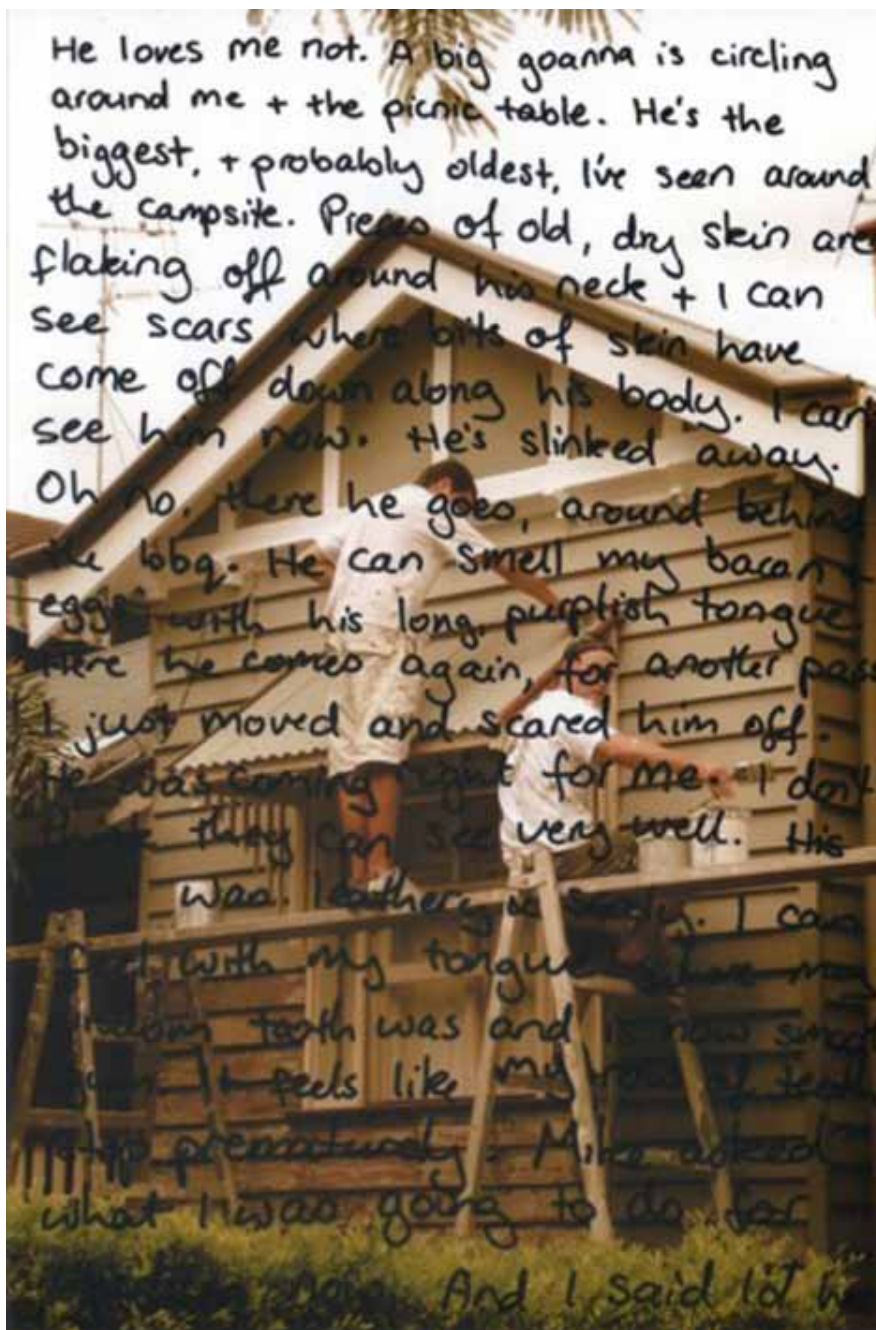 He loves me not. A big goanna is circling
around me + the picnic table. He's the
biggest, + probably oldest, I've seen around
the campsite. Pieces of old, dry skin are
flaking off around his neck + I can
see scars where bits of skin have
come off down along his body. I can't
see him now. He's slinked away.
Oh no, there he goes, around behind
the bbq. He can smell my bacon +
eggs with his long, purplish tongue
Here he comes again, for another pass
I just moved and scared him off.
He was coming right for me. I don't
think they can see very well. His
was leathery + scaly. I can
feel with my tongue where my
wisdom tooth was and is now smooth
gum. It feels like my row of teeth
stop prematurely. Mike asked
what I was going to do for
And I said I'd